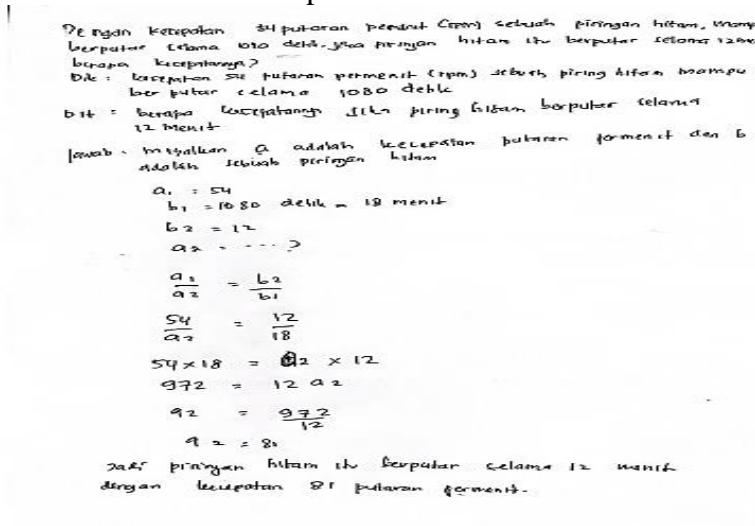 Dengan kecepatan 54 putaran permenit (rpm) sebuah piringan hitam, mamp
berputar selama 1080 detik. jika piringan hitam itu berputar selama 12 men
berapa kecepatannya?
Dik : kecepatan 54 putaran permenit (rpm) sebuah piring hitam mampu
berputar selama 1080 detik
Dit : berapa kecepatannya jika piring hitam berputar selama
12 menit
Jawab : misalkan a adalah kecepatan putaran permenit dan b
adalah sebuah piringan hitam
a₁ = 54
b₁ = 1080 detik = 18 menit
b2 = 12
a2 . - - - ?
a₁/a2 = b2/b1
54/a2 = 12/18
54 × 18 = a2 × 12
972 = 12 a2
a2 = 972/12
a2 = 81
Jadi piringan hitam itu berputar selama 12 menit
dengan kecepatan 81 putaran permenit.